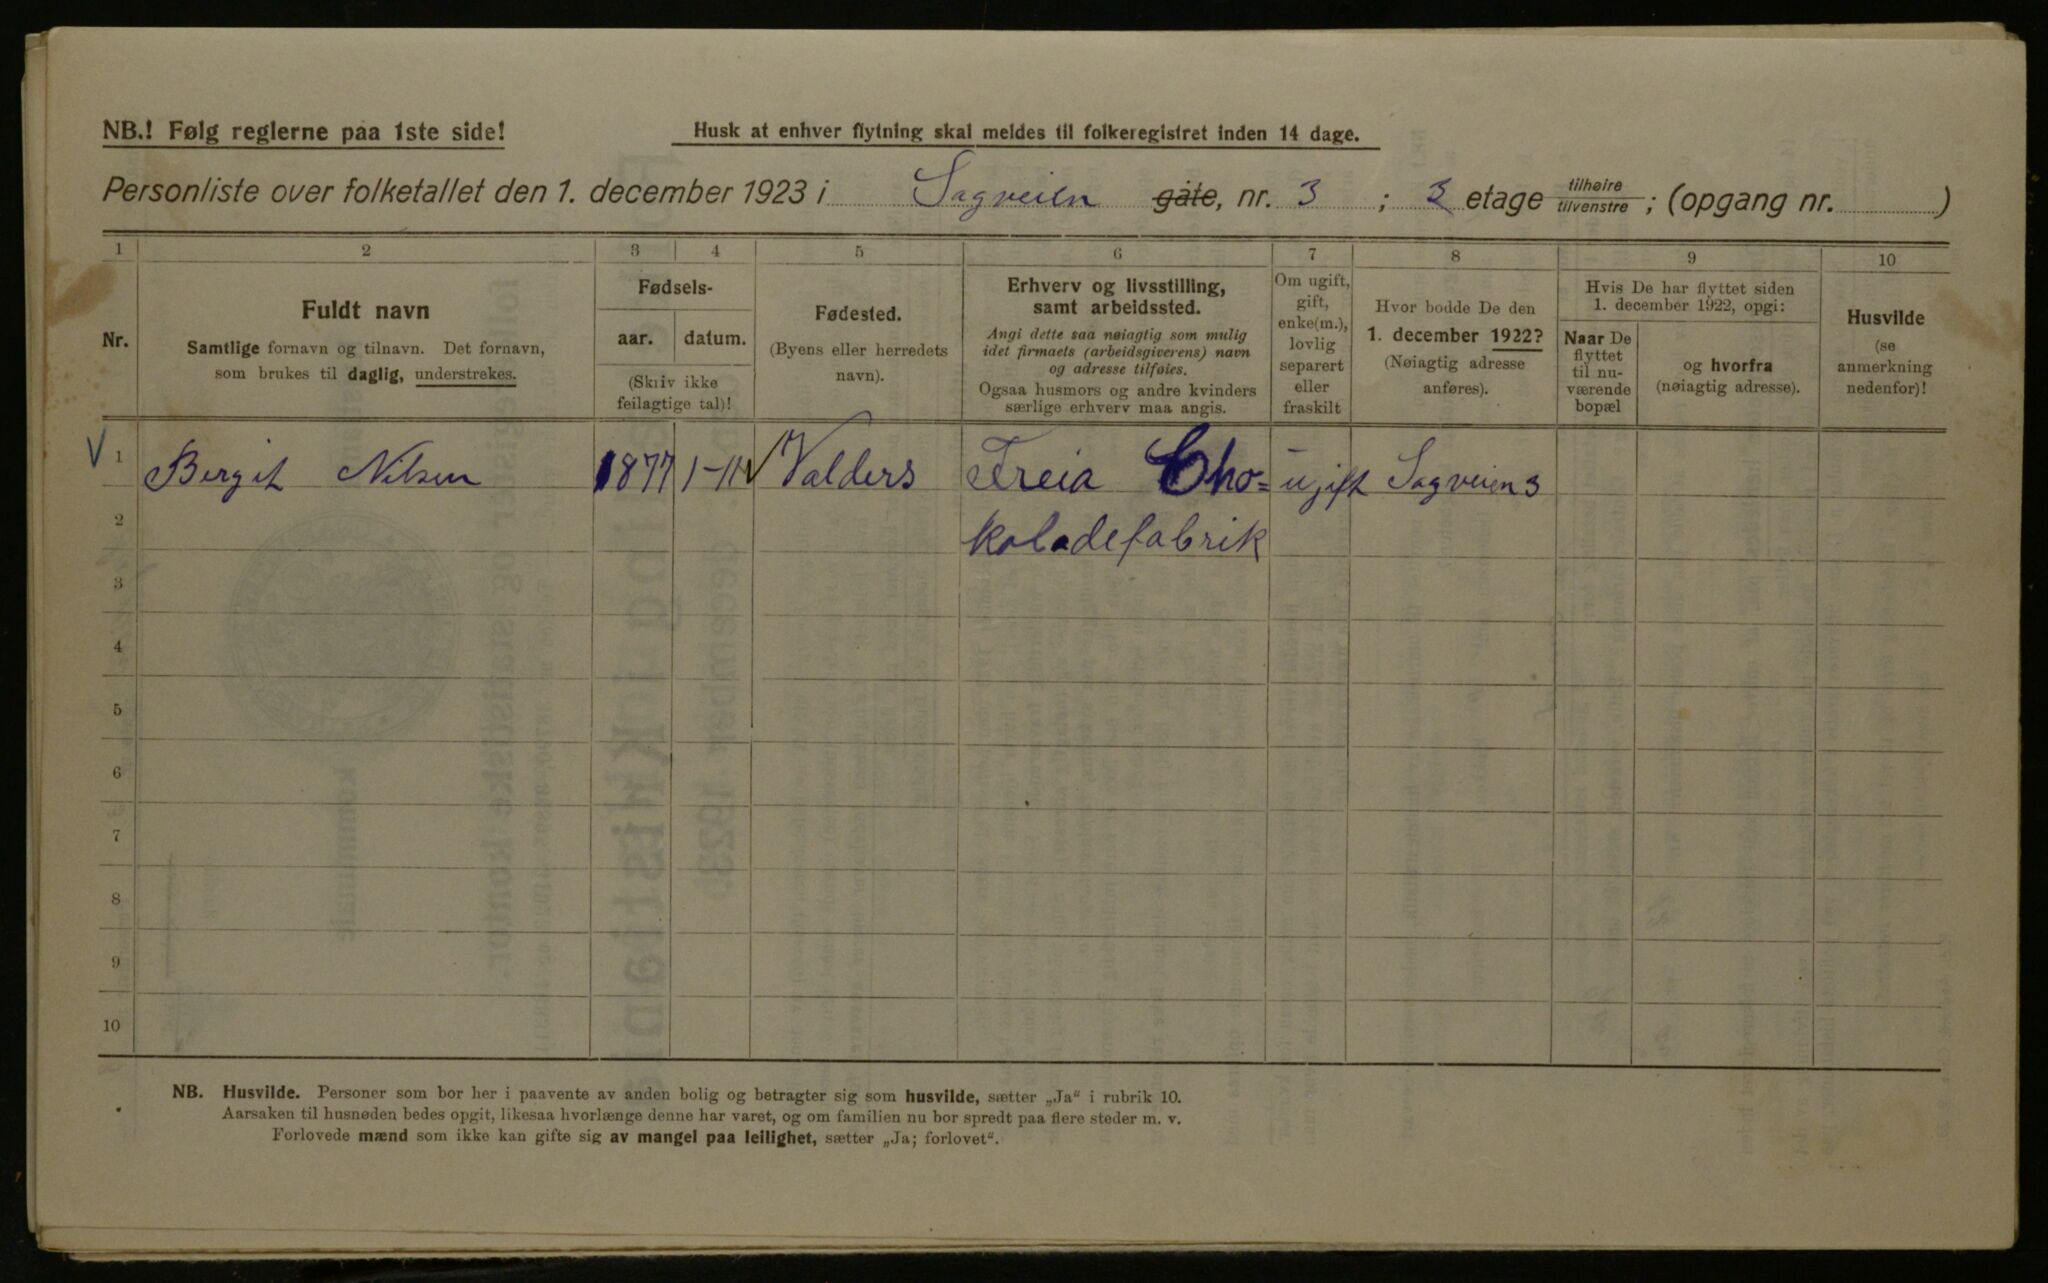 NB.! Følg reglerne paa 1ste side!
Husk at enhver flytning skal meldes til folkeregistret inden 14 dage.
Personliste over folketallet den 1. december 1923 i Sagveien gate, nr. 3 ; 3 etage tilhøire tilvenstre ; (opgang nr. )
1 2 3 4 5 6 7 8 9 10
Nr.
Fuldt navn
Samtlige fornavn og tilnavn. Det fornavn,
som brukes til daglig, understrekes.
Fødsels-
aar. datum.
(Skriv ikke
feilagtige tal)!
Fødested.
(Byens eller herredets
navn).
Erhverv og livsstilling,
samt arbeidssted.
Angi dette saa nøiagtig som mulig
idet firmaets (arbeidsgiverens) navn
og adresse tilføies.
Ogsaa husmors og andre kvinders
særlige erhverv maa angis.
Om ugift,
gift,
enke(m.),
lovlig
separert
eller
fraskilt
Hvor bodde De den
1. december 1922?
(Nøiagtig adresse
anføres).
Hvis De har flyttet siden
1. december 1922, opgi:
Naar De
flyttet
til nu-
værende
bopæl
og hvorfra
(nøiagtig adresse).
Husvilde
(se
anmerkning
nedenfor)!
1 Bergit Nilsen 1877 1-11 Valders Freia Cho= ugift Sagveien 3
2 koladefabrik
3
4
5
6
7
8
9
10
NB. Husvilde. Personer som bor her i paavente av anden bolig og betragter sig som husvilde, sætter „Ja“ i rubrik 10.
Aarsaken til husnøden bedes opgit, likesaa hvorlænge denne har varet, og om familien nu bor spredt paa flere steder m. v.
Forlovede mænd som ikke kan gifte sig av mangel paa leilighet, sætter „Ja; forlovet“.